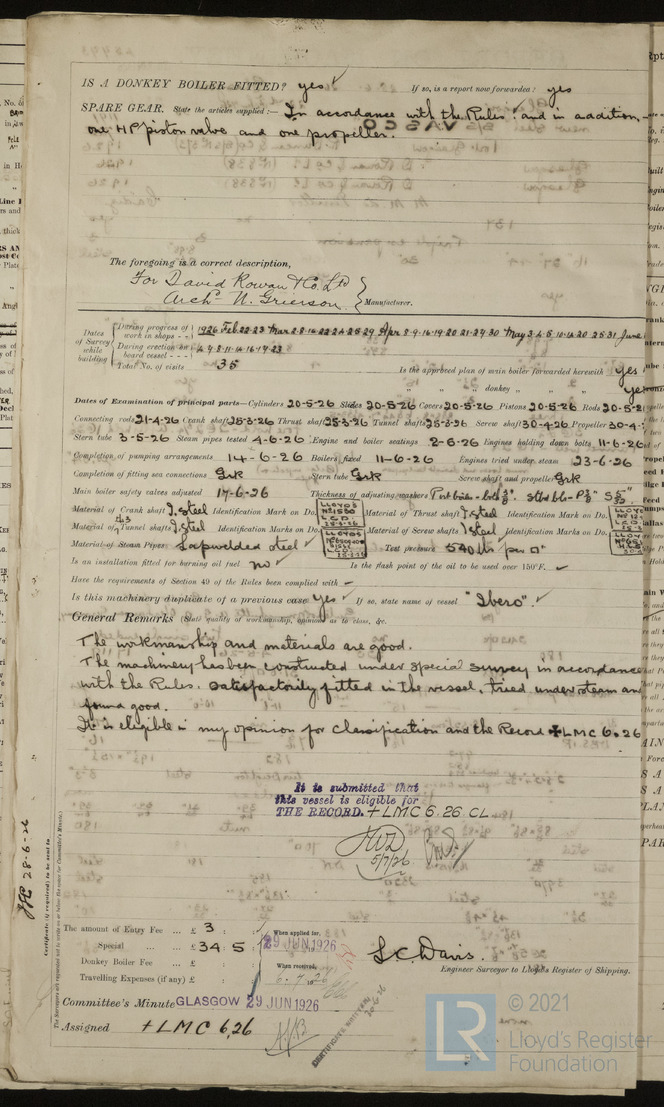 IS A DONKEY BOILER FITTED? yes ✓ If so, is a report now forwarded? yes
SPARE GEAR. State the articles supplied:— In accordance with the Rules: and in addition,—
one HP piston valve and one propeller.
The foregoing is a correct description,
For David Rowan & Co. Ltd
Archd. N. Grierson Manufacturer.
Dates of Survey while building
During progress of work in shops - - 1926 Feb 22-23 Mar 2-8-16-22-24-25-29 Apr 8-9-14-19-20-21-29-30 May 3-4-5-10-14-20-25-31 June
During erection on board vessel - - - 4-9-8-11-14-16-19-23
Total No. of visits 35 Is the approved plan of main boiler forwarded herewith yes
" " " donkey " " " yes
Dates of Examination of principal parts—Cylinders 20-5-26 Slides 20-5-26 Covers 20-5-26 Pistons 20-5-26 Rods 20-5-2
Connecting rods 21-4-26 Crank shaft 25-3-26 Thrust shaft 25-3-26 Tunnel shafts 25-3-26 Screw shaft 30-4-26 Propeller 30-4-
Stern tube 3-5-26 Steam pipes tested 4-6-26 Engine and boiler seatings 8-6-26 Engines holding down bolts 11-6-26
Completion of pumping arrangements 14-6-26 Boilers fixed 11-6-26 Engines tried under steam 23-6-26
Completion of fitting sea connections Grk Stern tube Grk Screw shaft and propeller Grk
Main boiler safety valves adjusted 17-6-26 Thickness of adjusting washers
Material of Crank shaft I. steel Identification Mark on Do. LLOYDS Material of Thrust shaft I steel Identification Mark on Do. LLOYD
Material of Tunnel shafts I. steel Identification Marks on Do. LLOYDS Material of Screw shafts I steel Identification Marks on Do. LLOYD
Material of Steam Pipes Lapwelded steel ✓ Test pressure 540 lbs per □"
Is an installation fitted for burning oil fuel no ✓ Is the flash point of the oil to be used over 150°F. ✓
Have the requirements of Section 49 of the Rules been complied with –
Is this machinery duplicate of a previous case yes ✓ If so, state name of vessel "Ibero". ✓
General Remarks (State quality of workmanship, opinions as to class, &c.
The workmanship and materials are good.
The machinery has been constructed under special survey in accordance
with the Rules. satisfactorily fitted in the vessel, tried under steam an
found good.
It is eligible in my opinion for classification and the Record ✠ LMC 6.26
It is submitted that
this vessel is eligible for
THE RECORD. + LMC 6.26. CL.
5/7/26
28-6-26
Certificate (if required) to be sent to
The amount of Entry Fee ... £ 3 : :
Special ... £ 34 : 5 :
Donkey Boiler Fee ... £ : :
Travelling Expenses (if any) £ : :
When applied for,
29 JUN 1926
When received,
L.C. Davis.
Engineer Surveyor to Lloyd's Register of Shipping.
Committee's Minute GLASGOW 29 JUN 1926
Assigned + LMC 6,26
CERTIFICATE WRITTEN
LR © 2021
Lloyd's Register
Foundation